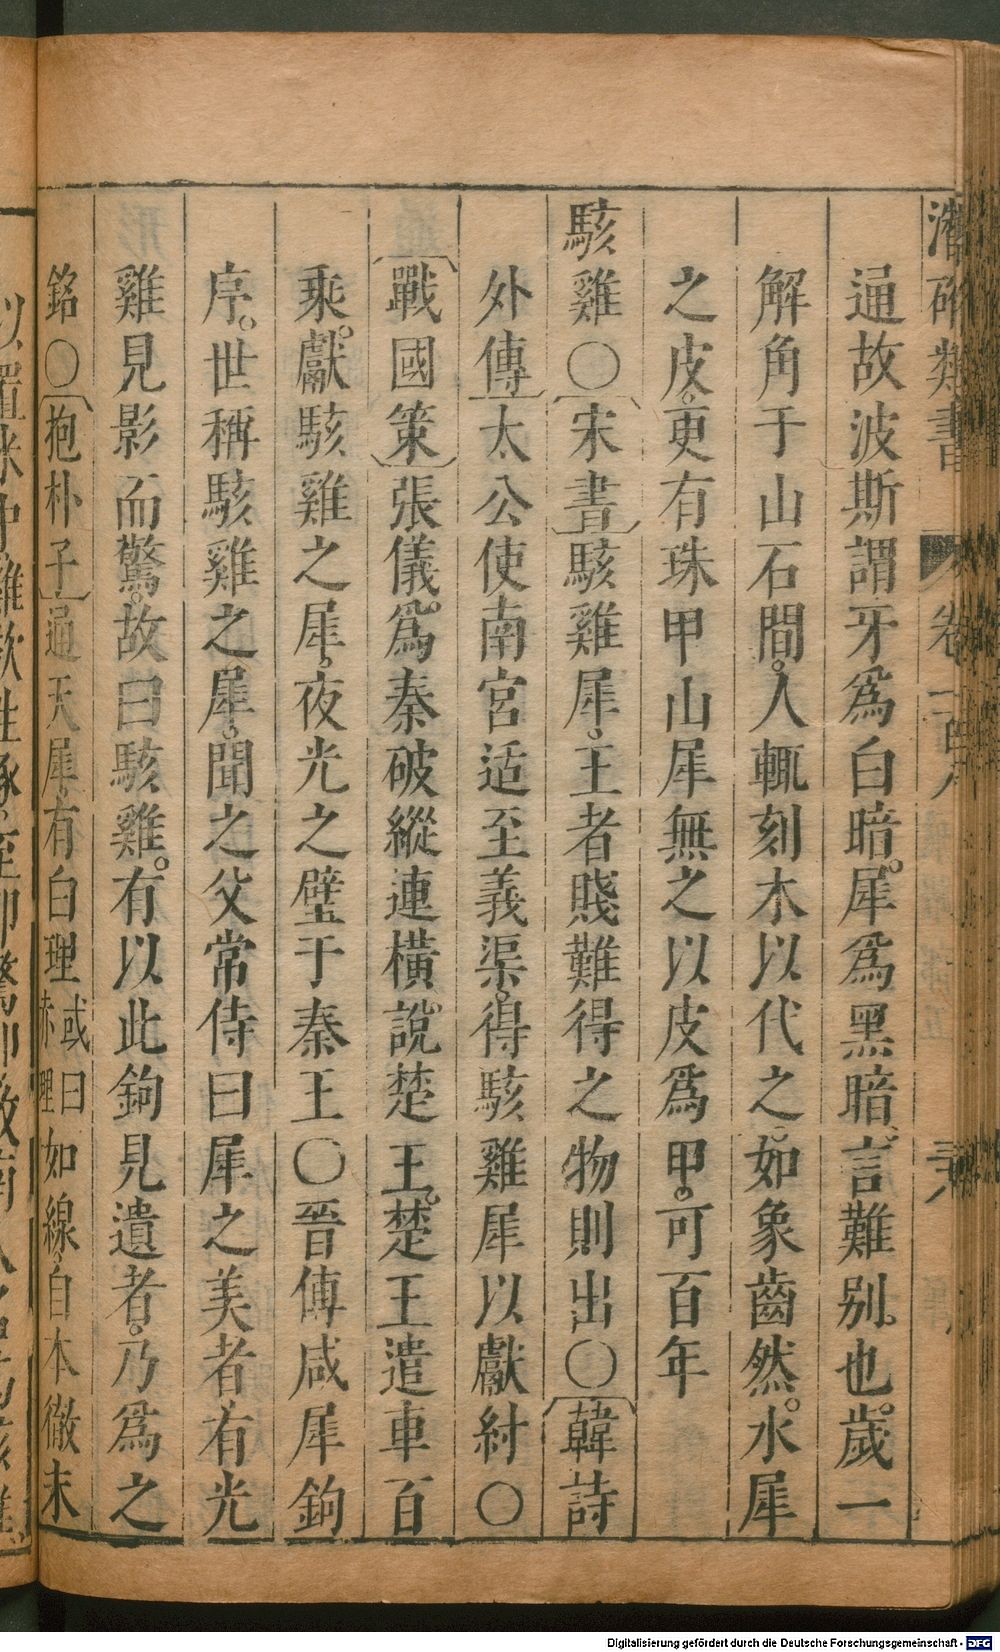 潛確類書 卷一百八
通故波斯謂牙爲白暗。犀爲黑暗、言難别也。歲一
解角于山石間。人輒刻木以代之。如象齒然。水犀
之皮。更有珠甲山犀無之以皮爲甲。可百年
駭雞〇宋書駭雞犀、王者賤難得之物則出〇韓詩
外傳太公使南宮适至義渠。得駭雞犀以獻紂〇
戰國策張儀。爲秦破縱連橫。說楚王。楚王遣車百
乘。獻駭雞之犀、夜光之璧于秦王〇晉傅咸犀鉤
序。世稱駭雞之犀。聞之父常侍曰犀之美者、有光
雞見影而驚。故曰駭雞。有以此鉤見遺者。乃爲之
銘〇抱朴子通天犀、有白理或曰赤理如線、自本徹末
Digitalisierung gefördert durch die Deutsche Forschungsgemeinschaft - DFG